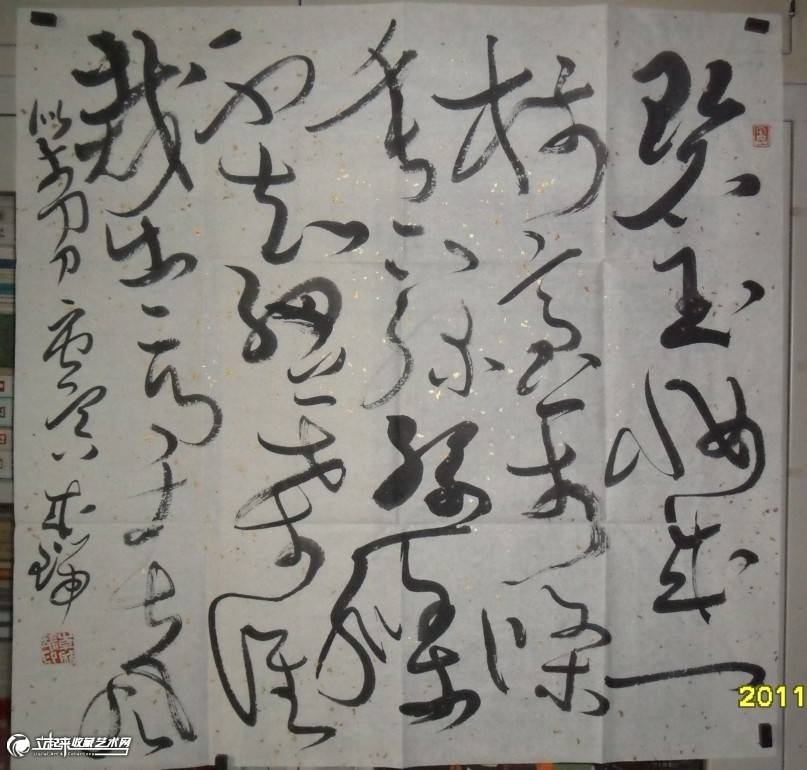 碧玉妆成一
树高万条
垂下绿丝绦
不知细叶谁
裁出二月春风
似剪刀
2011
立起来收藏艺术网